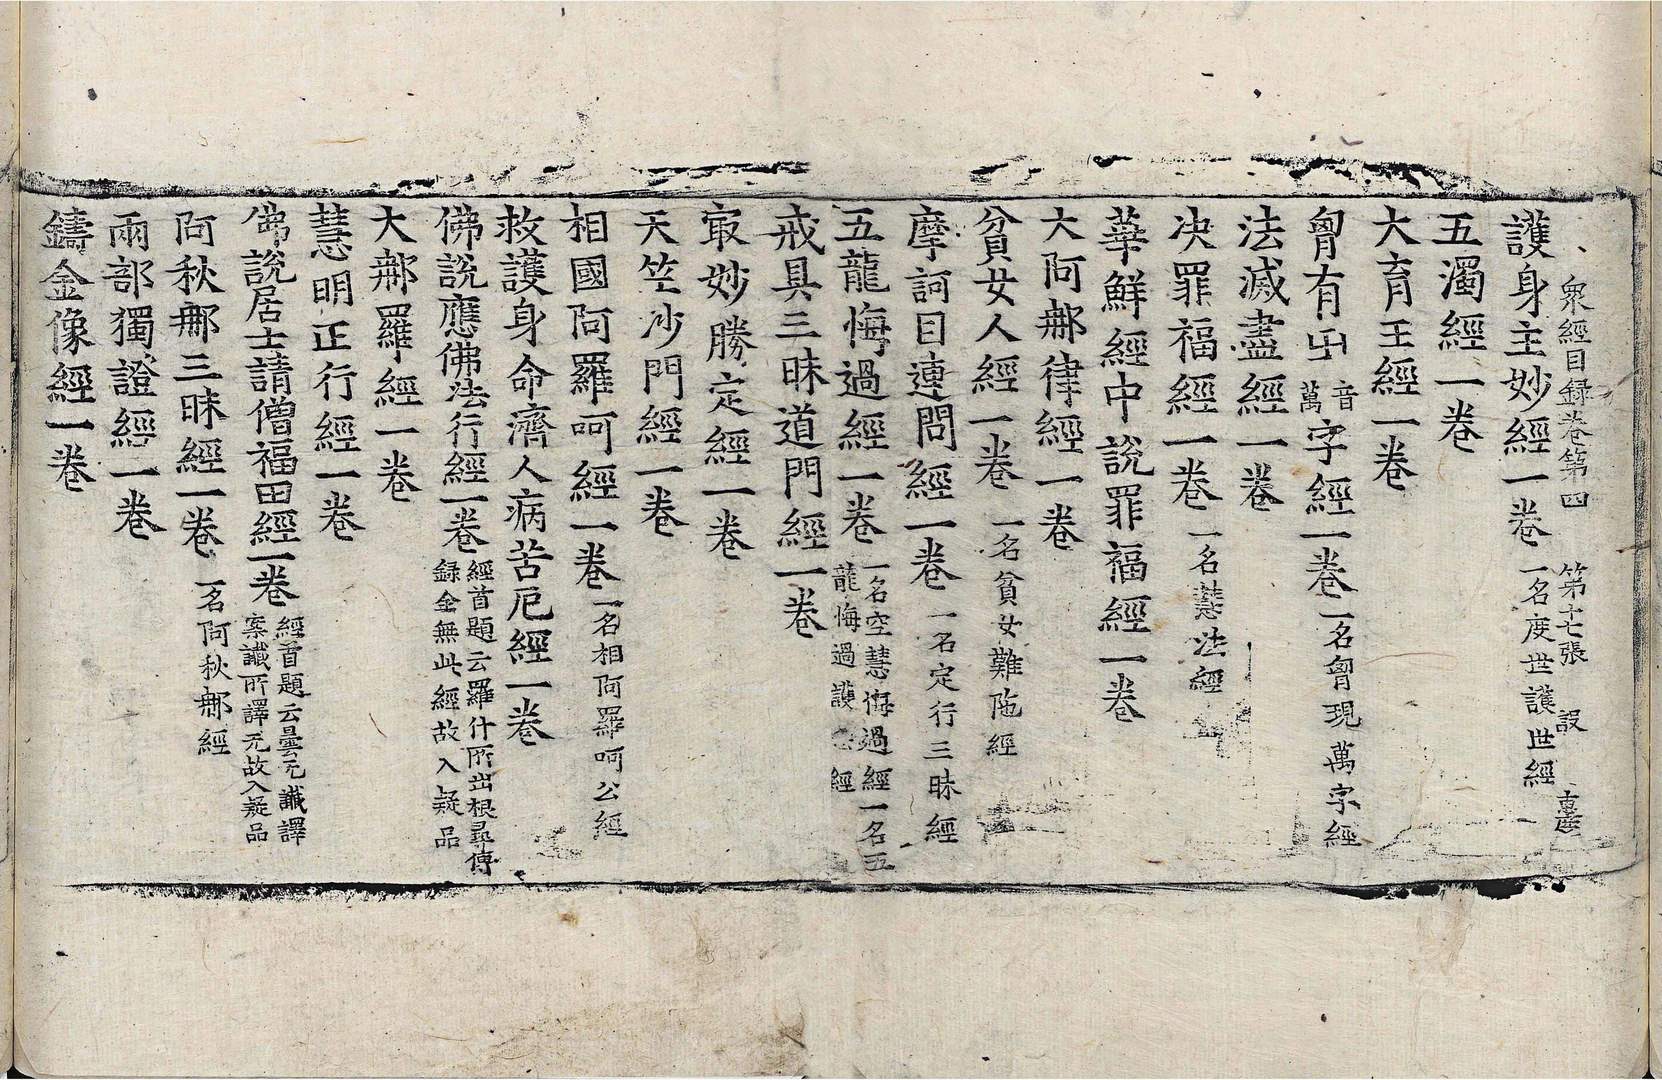 衆經目録卷第四　第十七張　設
護身主妙經一卷 一名度世護世經
五濁經一卷
大育王經一卷
𦚾有卍 音萬 字經一卷 一名𦚾現萬字經
法滅盡經一卷
决罪福經一卷 一名慧法經
華鮮經中說罪福經一卷
大阿那律經一卷
貧女人經一卷 一名貧女難陁經
摩訶目連問經一卷 一名定行三昧經
五龍悔過經一卷 一名空慧悔過經一名五龍悔過護 經
戒具三昧道門經一卷
㝡妙勝定經一卷
天竺沙門經一卷
相國阿羅呵經一卷 一名相阿羅呵公經
救護身命濟人病苦厄經一卷
佛說應佛法行經一卷 經首題云羅什所出根尋傳録金無此經故入疑品
大那羅經一卷
慧明正行經一卷
佛說居士請僧福田經一卷 經首題云曇无讖譯案讖所譯无故入疑品
阿秋那三昧經一卷 一名阿秋那經
兩部獨證經一卷
鑄金像經一卷